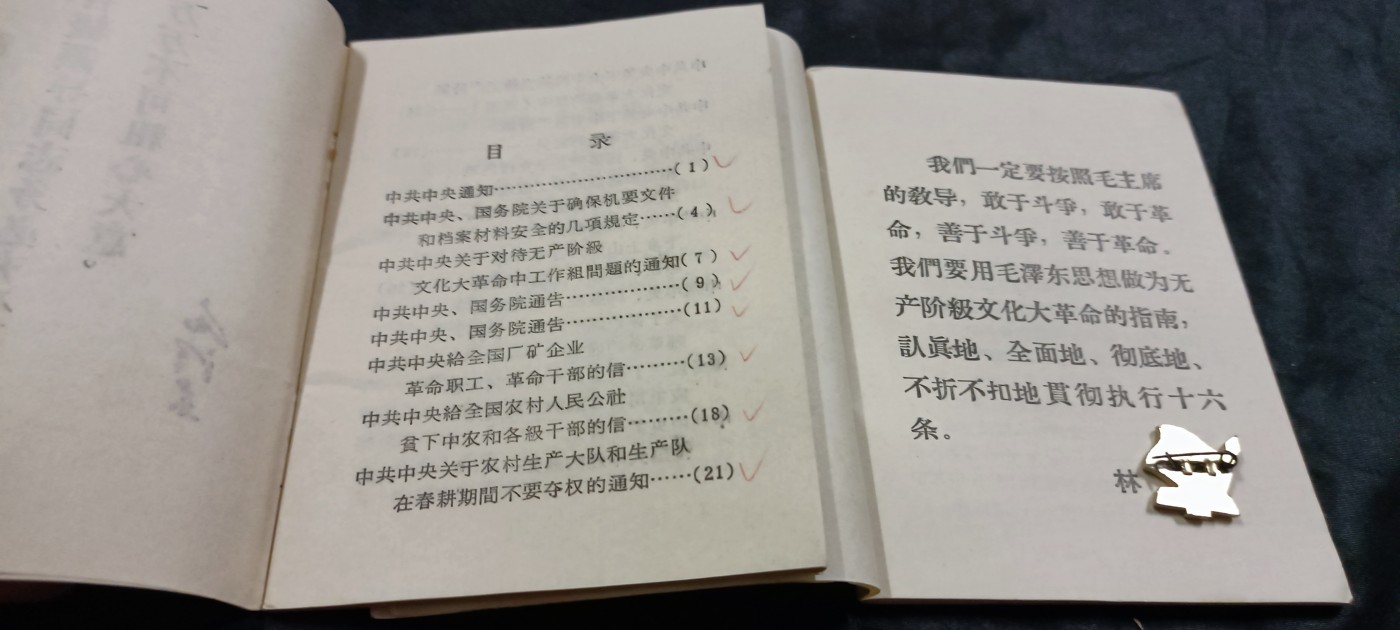 目 录
中共中央通知……………………………(1)
中共中央、国务院关于确保机要文件
和档案材料安全的几項規定……(4)
中共中央关于对待无产阶級
文化大革命中工作組問題的通知(7)
中共中央、国务院通告………………(9)
中共中央、国务院通告………………(11)
中共中央給全国厂矿企业
革命职工、革命干部的信………(13)
中共中央給全国农村人民公社
貧下中农和各級干部的信………(18)
中共中央关于农村生产大队和生产队
在春耕期間不要夺权的通知……(21)
我們一定要按照毛主席
的敎导，敢于斗爭，敢于革
命，善于斗爭，善于革命。
我們要用毛澤东思想做为无
产阶級文化大革命的指南，
訤眞地、全面地、彻底地、
不折不扣地貫彻执行十六
条。
林